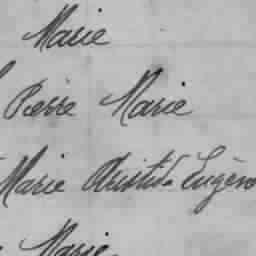 Marie
Pierre Marie
Marie Aristide Eugène
Marie